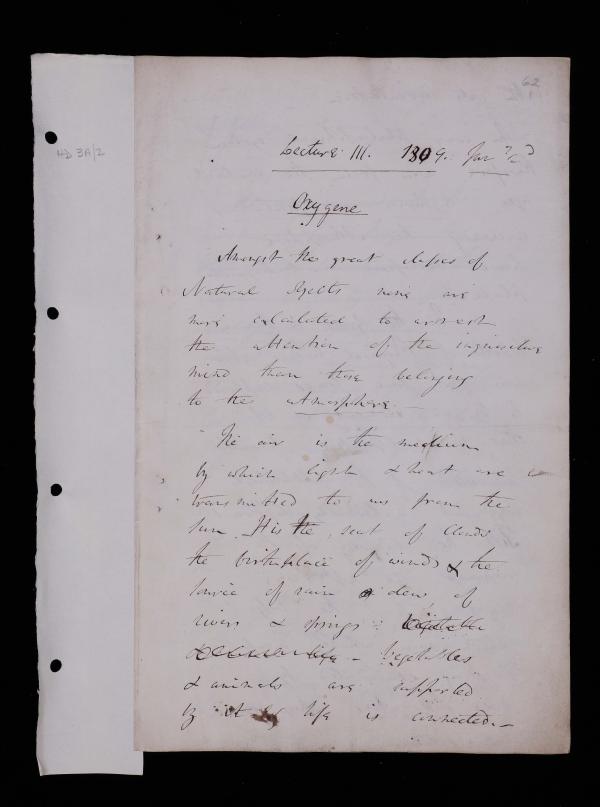 62
HD 3A/2
Lecture III. 1809. Jan
Oxygene
Amongst the great classes of
Natural objects none are
more calculated to arrest
the attention of the inquisitive
mind than those belonging
to the atmosphere. -
The air is the medium
by which light & heat are
transmitted to us from the
sun. It is the seat of Clouds
the birthplace of winds & the
source of rain & dew of
rivers & springs :
- Vegetables
& animals are supported
by it & life is connected. -